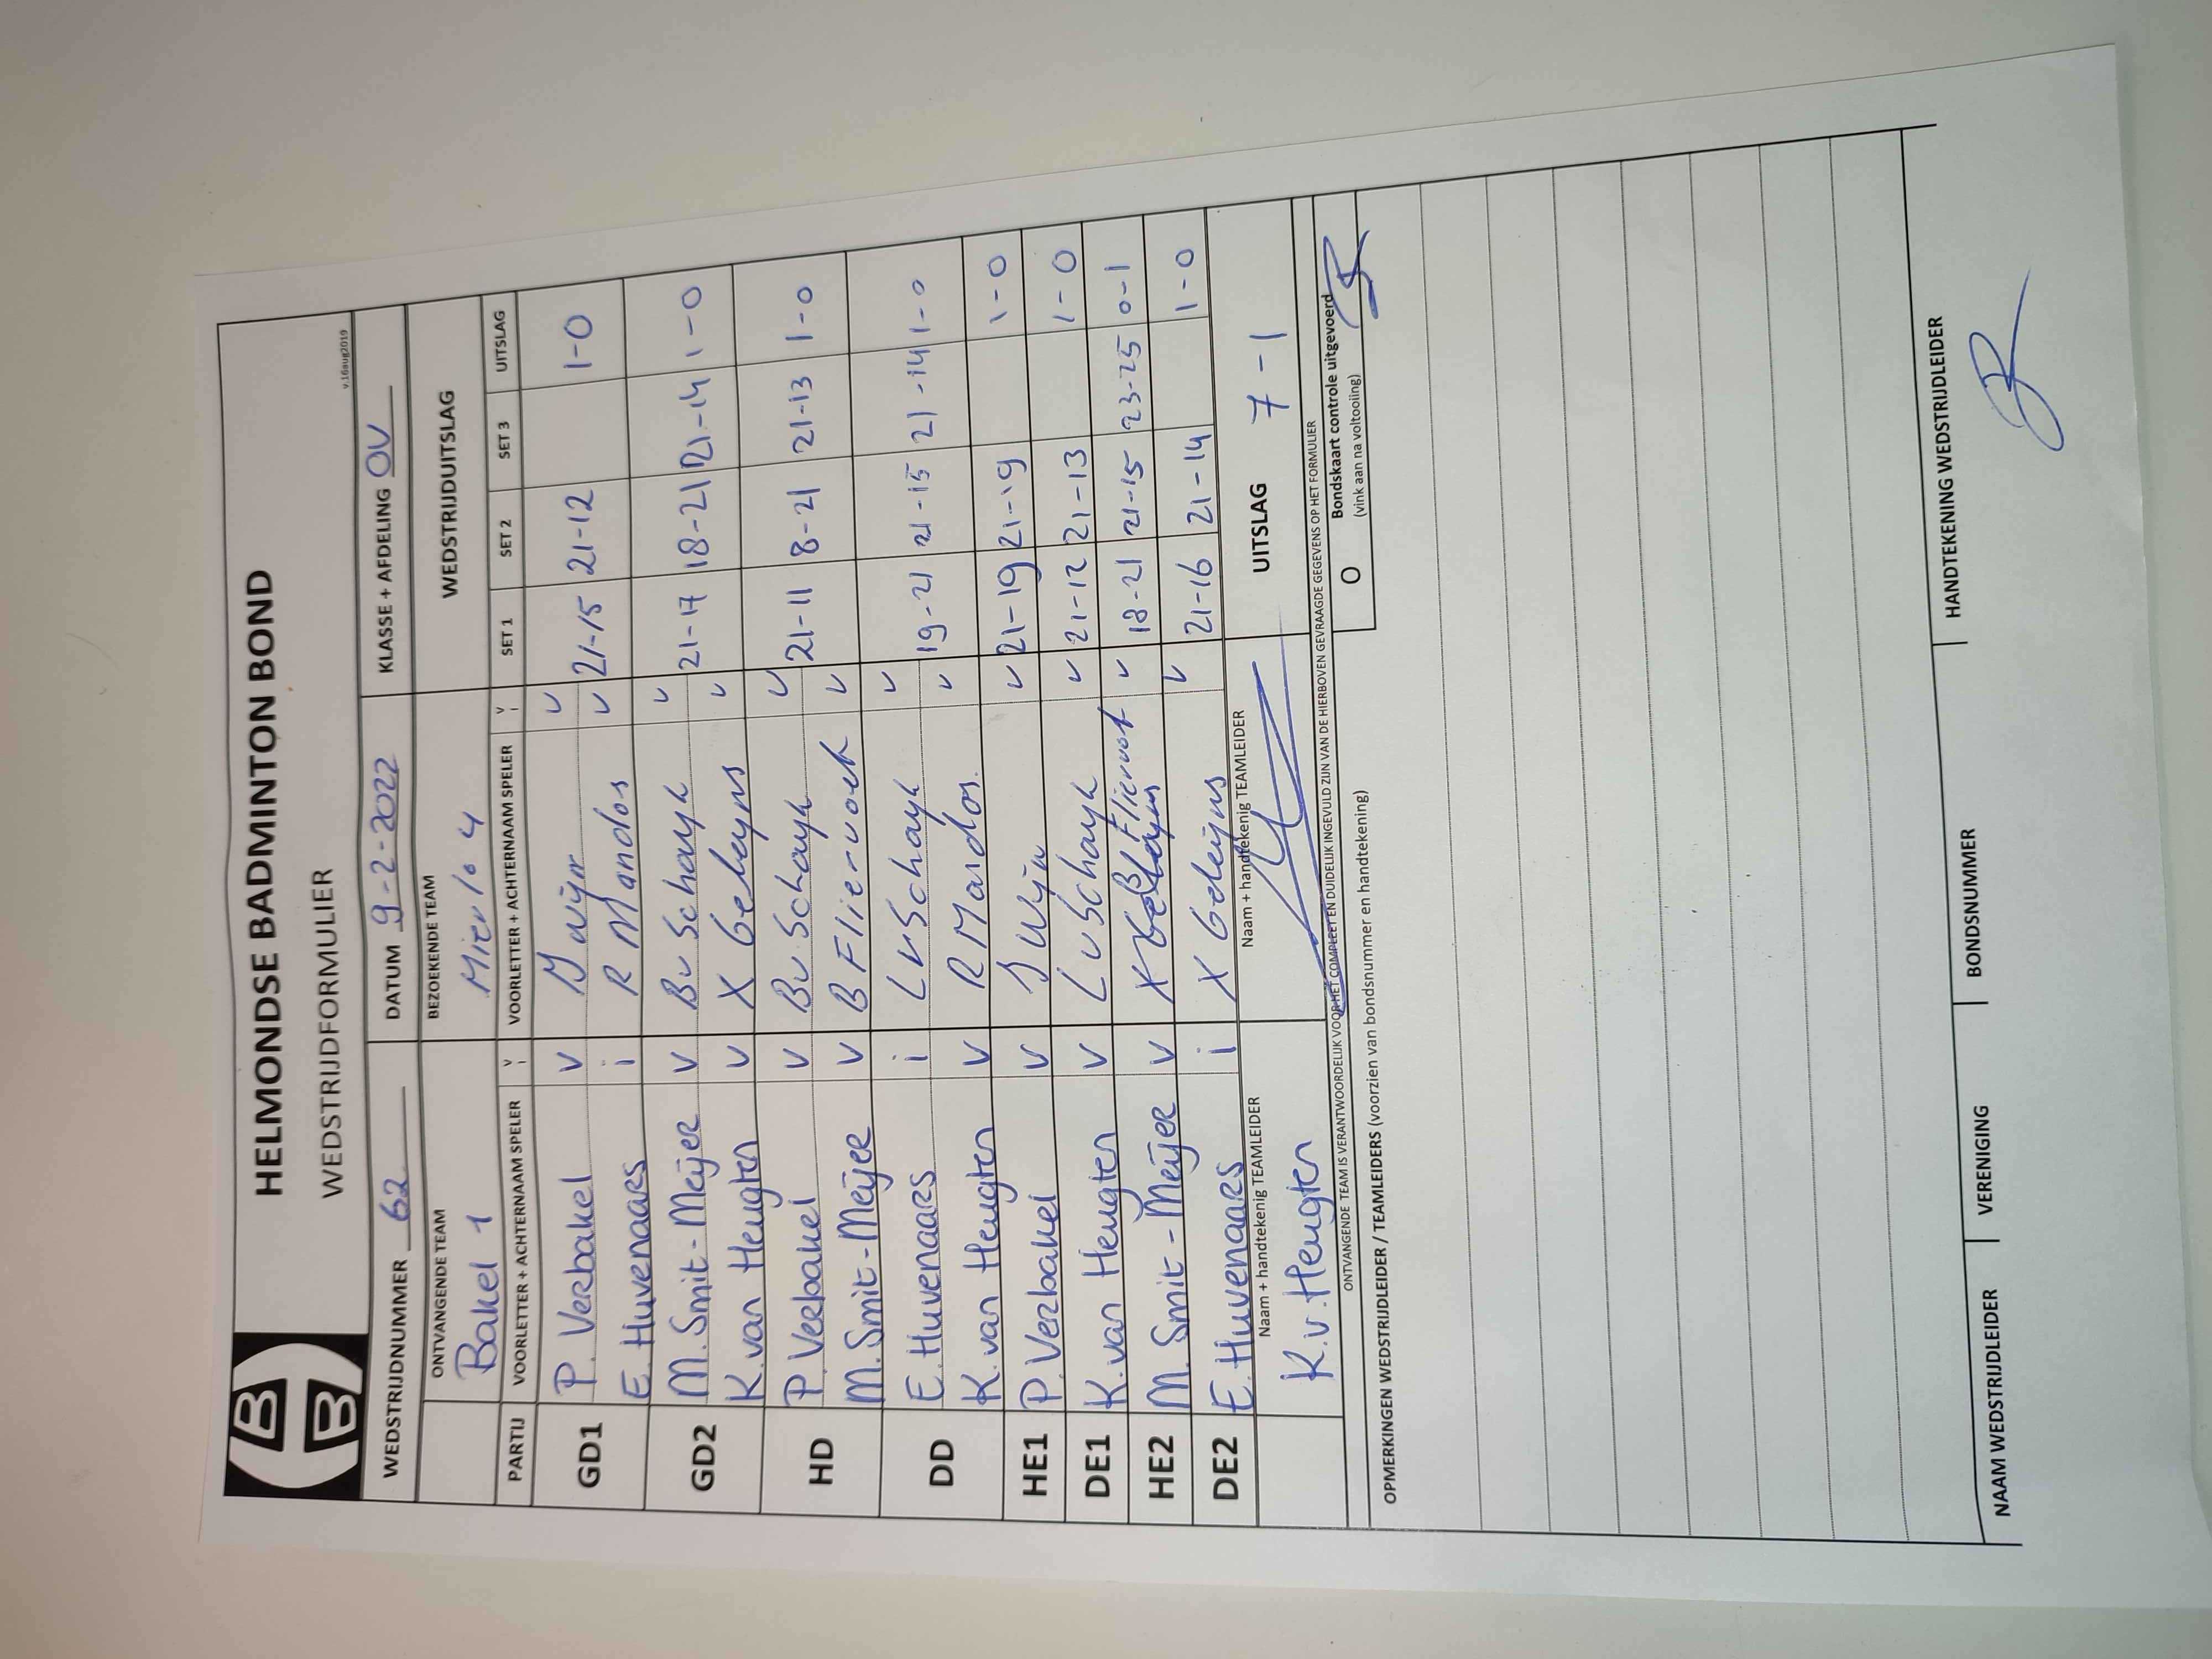 HELMONDSE BADMINTON BOND
WEDSTRIJDFORMULIER
v.16aug2019
WEDSTRIJDNUMMER 62 DATUM 9-2-2022 KLASSE + AFDELING OV
ONTVANGENDE TEAM BEZOEKENDE TEAM WEDSTRIJDUITSLAG
Bakel 1 Mierlo 4
PARTIJ VOORLETTER + ACHTERNAAM SPELER v i VOORLETTER + ACHTERNAAM SPELER v i SET 1 SET 2 SET 3 UITSLAG
GD1 P. Verbakel v Wijn v 21-15 21-12 1-0
E. Huvenaars i R Mandos v
GD2 M. Smit-Meijer v Bv Schayk v 21-17 18-21 21-14 1-0
K. van Heugten v X Geleyns v
HD P. Verbakel v Bv Schayk v 21-11 8-21 21-13 1-0
M. Smit-Meijer v B Fliervoet v
DD E. Huvenaars i L v Schayk v 19-21 21-15 21-14 1-0
K. van Heugten v R Mandos. v
HE1 P. Verbakel v Wijn v 21-19 21-19 1-0
DE1 K. van Heugten v L v Schayk v 21-12 21-13 1-0
HE2 M. Smit-Meijer v B Fliervoet v 18-21 21-15 23-25 0-1
DE2 E. Huvenaars i X Geleijns v 21-16 21-14 1-0
Naam + handtekenig TEAMLEIDER Naam + handtekenig TEAMLEIDER UITSLAG 7-1
K.v. Heugten
ONTVANGENDE TEAM IS VERANTWOORDELIJK VOOR HET COMPLEET EN DUIDELIJK INGEVULD ZIJN VAN DE HIERBOVEN GEVRAAGDE GEGEVENS OP HET FORMULIER
O Bondskaart controle uitgevoerd
(vink aan na voltooiing)
OPMERKINGEN WEDSTRIJDLEIDER / TEAMLEIDERS (voorzien van bondsnummer en handtekening)
NAAM WEDSTRIJDLEIDER VERENIGING BONDSNUMMER HANDTEKENING WEDSTRIJDLEIDER